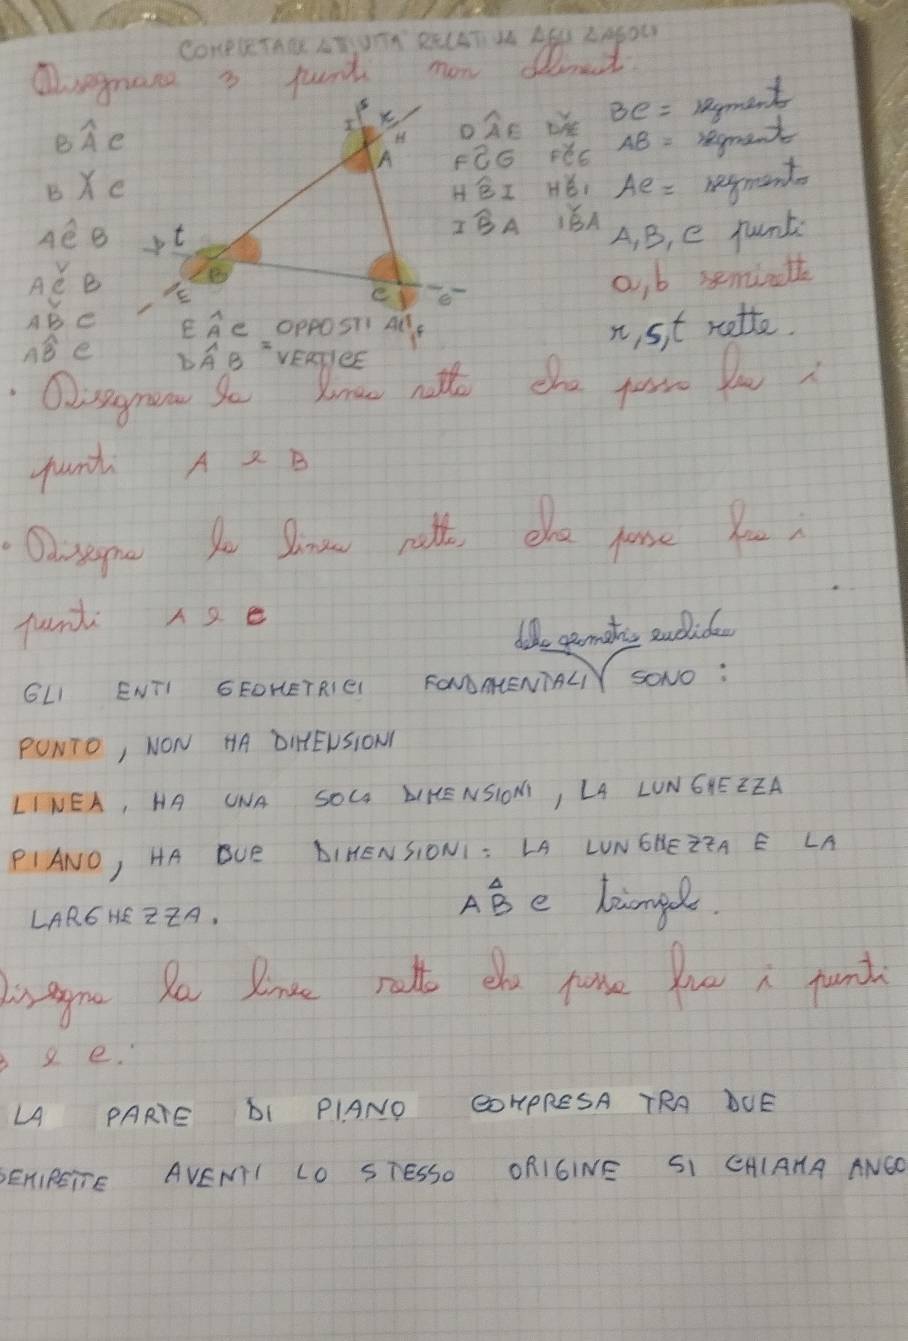 COMPLETARE ATTIVITA' RELATIVA AGLI ANGOLI
Disegnare 3 punti non allineati.
BÂC
BǍC
AĈB
AČB
AB̌C
AB̂C
S
I
H
A
t
B
E
C
G
F
DÂE DǍE
FĈG FČG
HB̂I HB̌I
IB̂A IB̌A
BC = segmento
AB = segmento
AC = segmento
A, B, C punti
a, b semirette
r, s, t rette.
EÂC = OPPOSTI AL
DÂB VERTICE
• Disegnare la linea retta che passa fra i
punti A e B
• Disegna la linea retta, che passa fra i
punti A e C
della geometria euclidea
GLI ENTI GEOMETRICI FONDAMENTALI SONO :
PUNTO, NON HA DIMENSIONI
LINEA, HA UNA SOLA DIMENSIONI, LA LUNGHEZZA
PIANO, HA DUE DIMENSIONI: LA LUNGHEZZA E LA
LARGHEZZA.
AB̂C triangolo.
Disegna la linea retta che passa fra i punti
B e C.
LA PARTE DI PIANO COMPRESA TRA DUE
SEMIRETTE AVENTI LO STESSO ORIGINE SI CHIAMA ANGO